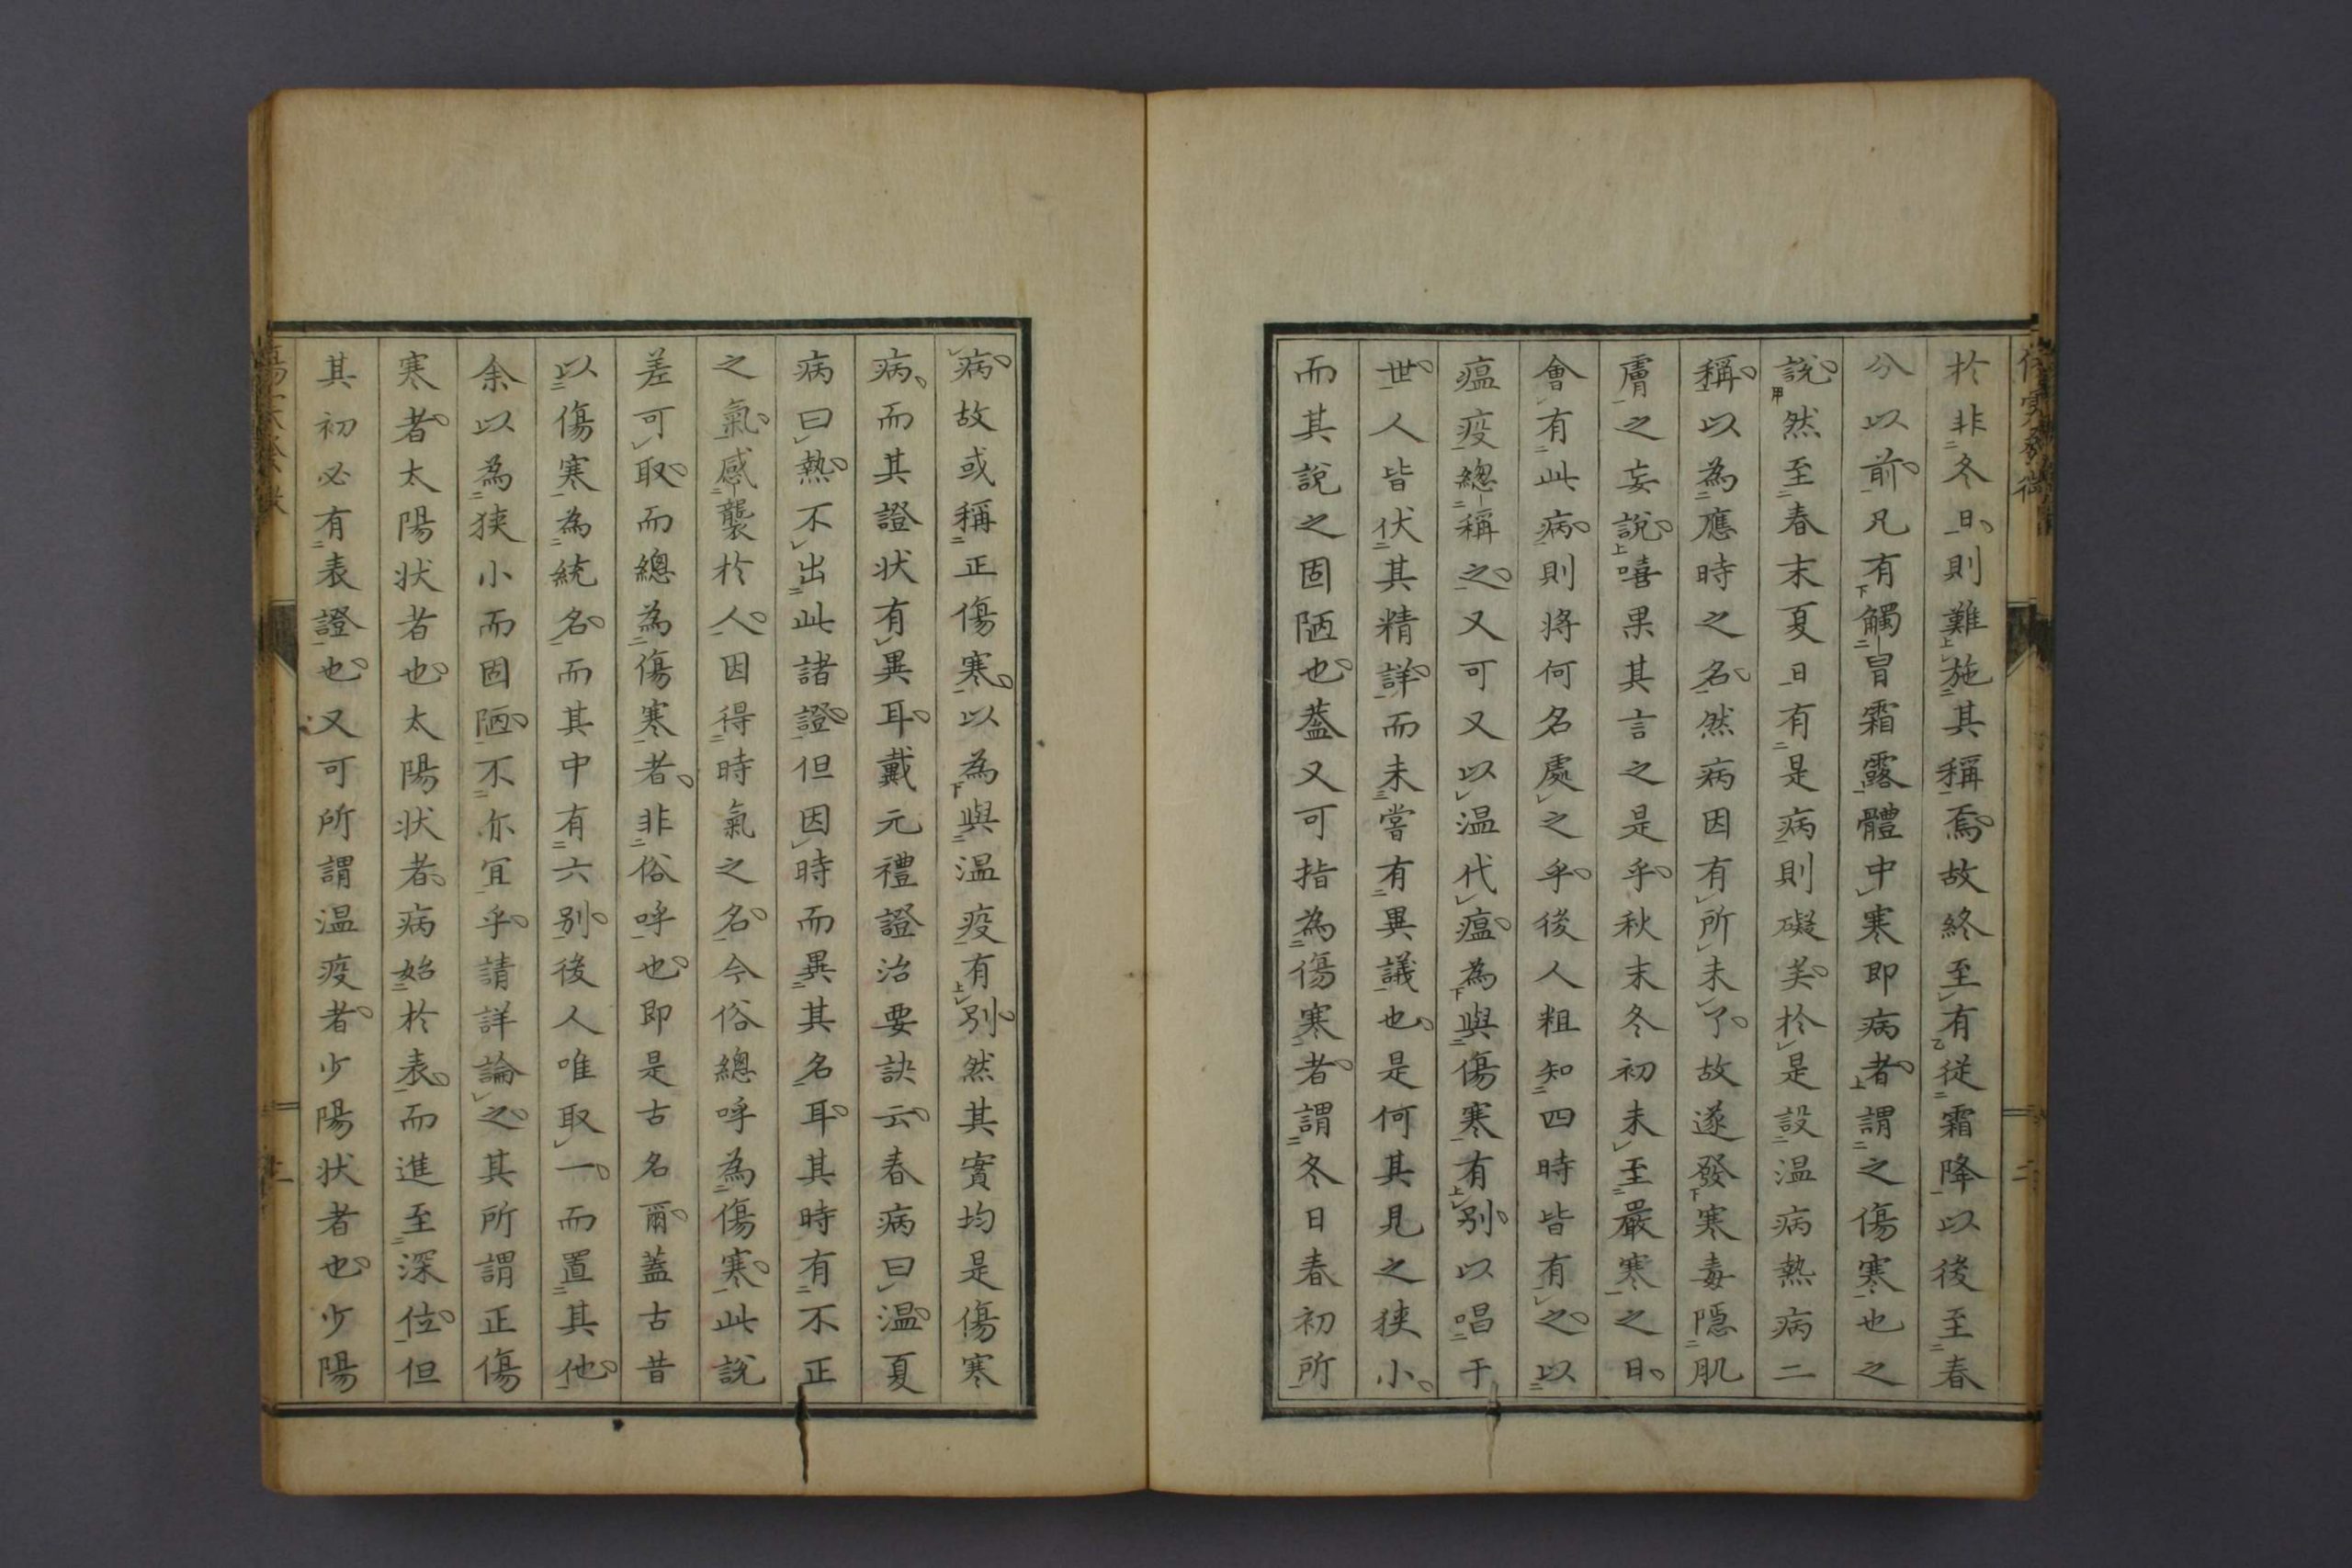 於非冬日則難施其稱焉故終至有從霜降以後至春
分以前凡有觸冒霜露體中寒即病者謂之傷寒也之
說然至春末夏日有是病則礙矣於是設温病熱病二
稱以為應時之名然病因有所未了故遂發寒毒隠肌
膚之妄說嘻果其言之是乎秋末冬初未至嚴寒之日
會有此病則将何名處之乎後人粗知四時皆有之以
瘟疫總稱之又可又以温代瘟為與傷寒有别以唱于
世人皆伏其精詳而未嘗有異議也是何其見之狭小
而其說之固陋也葢又可指為傷寒者謂冬日春初所
病故或稱正傷寒以為與温疫有别然其實均是傷寒
病而其證状有異耳戴元禮證治要訣云春病曰温夏
病曰熱不出此諸證但因時而異其名耳其時有不正
之氣感襲於人因得時氣之名今俗總呼為傷寒此說
差可取而總為傷寒者非俗呼也即是古名爾蓋古昔
以傷寒為統名而其中有六别後人唯取一而置其他
余以為狭小而固陋不亦宜乎請詳論之其所謂正傷
寒者太陽状者也太陽状者病始於表而進至深位但
其初必有表證也又可所謂温疫者少陽状者也少陽